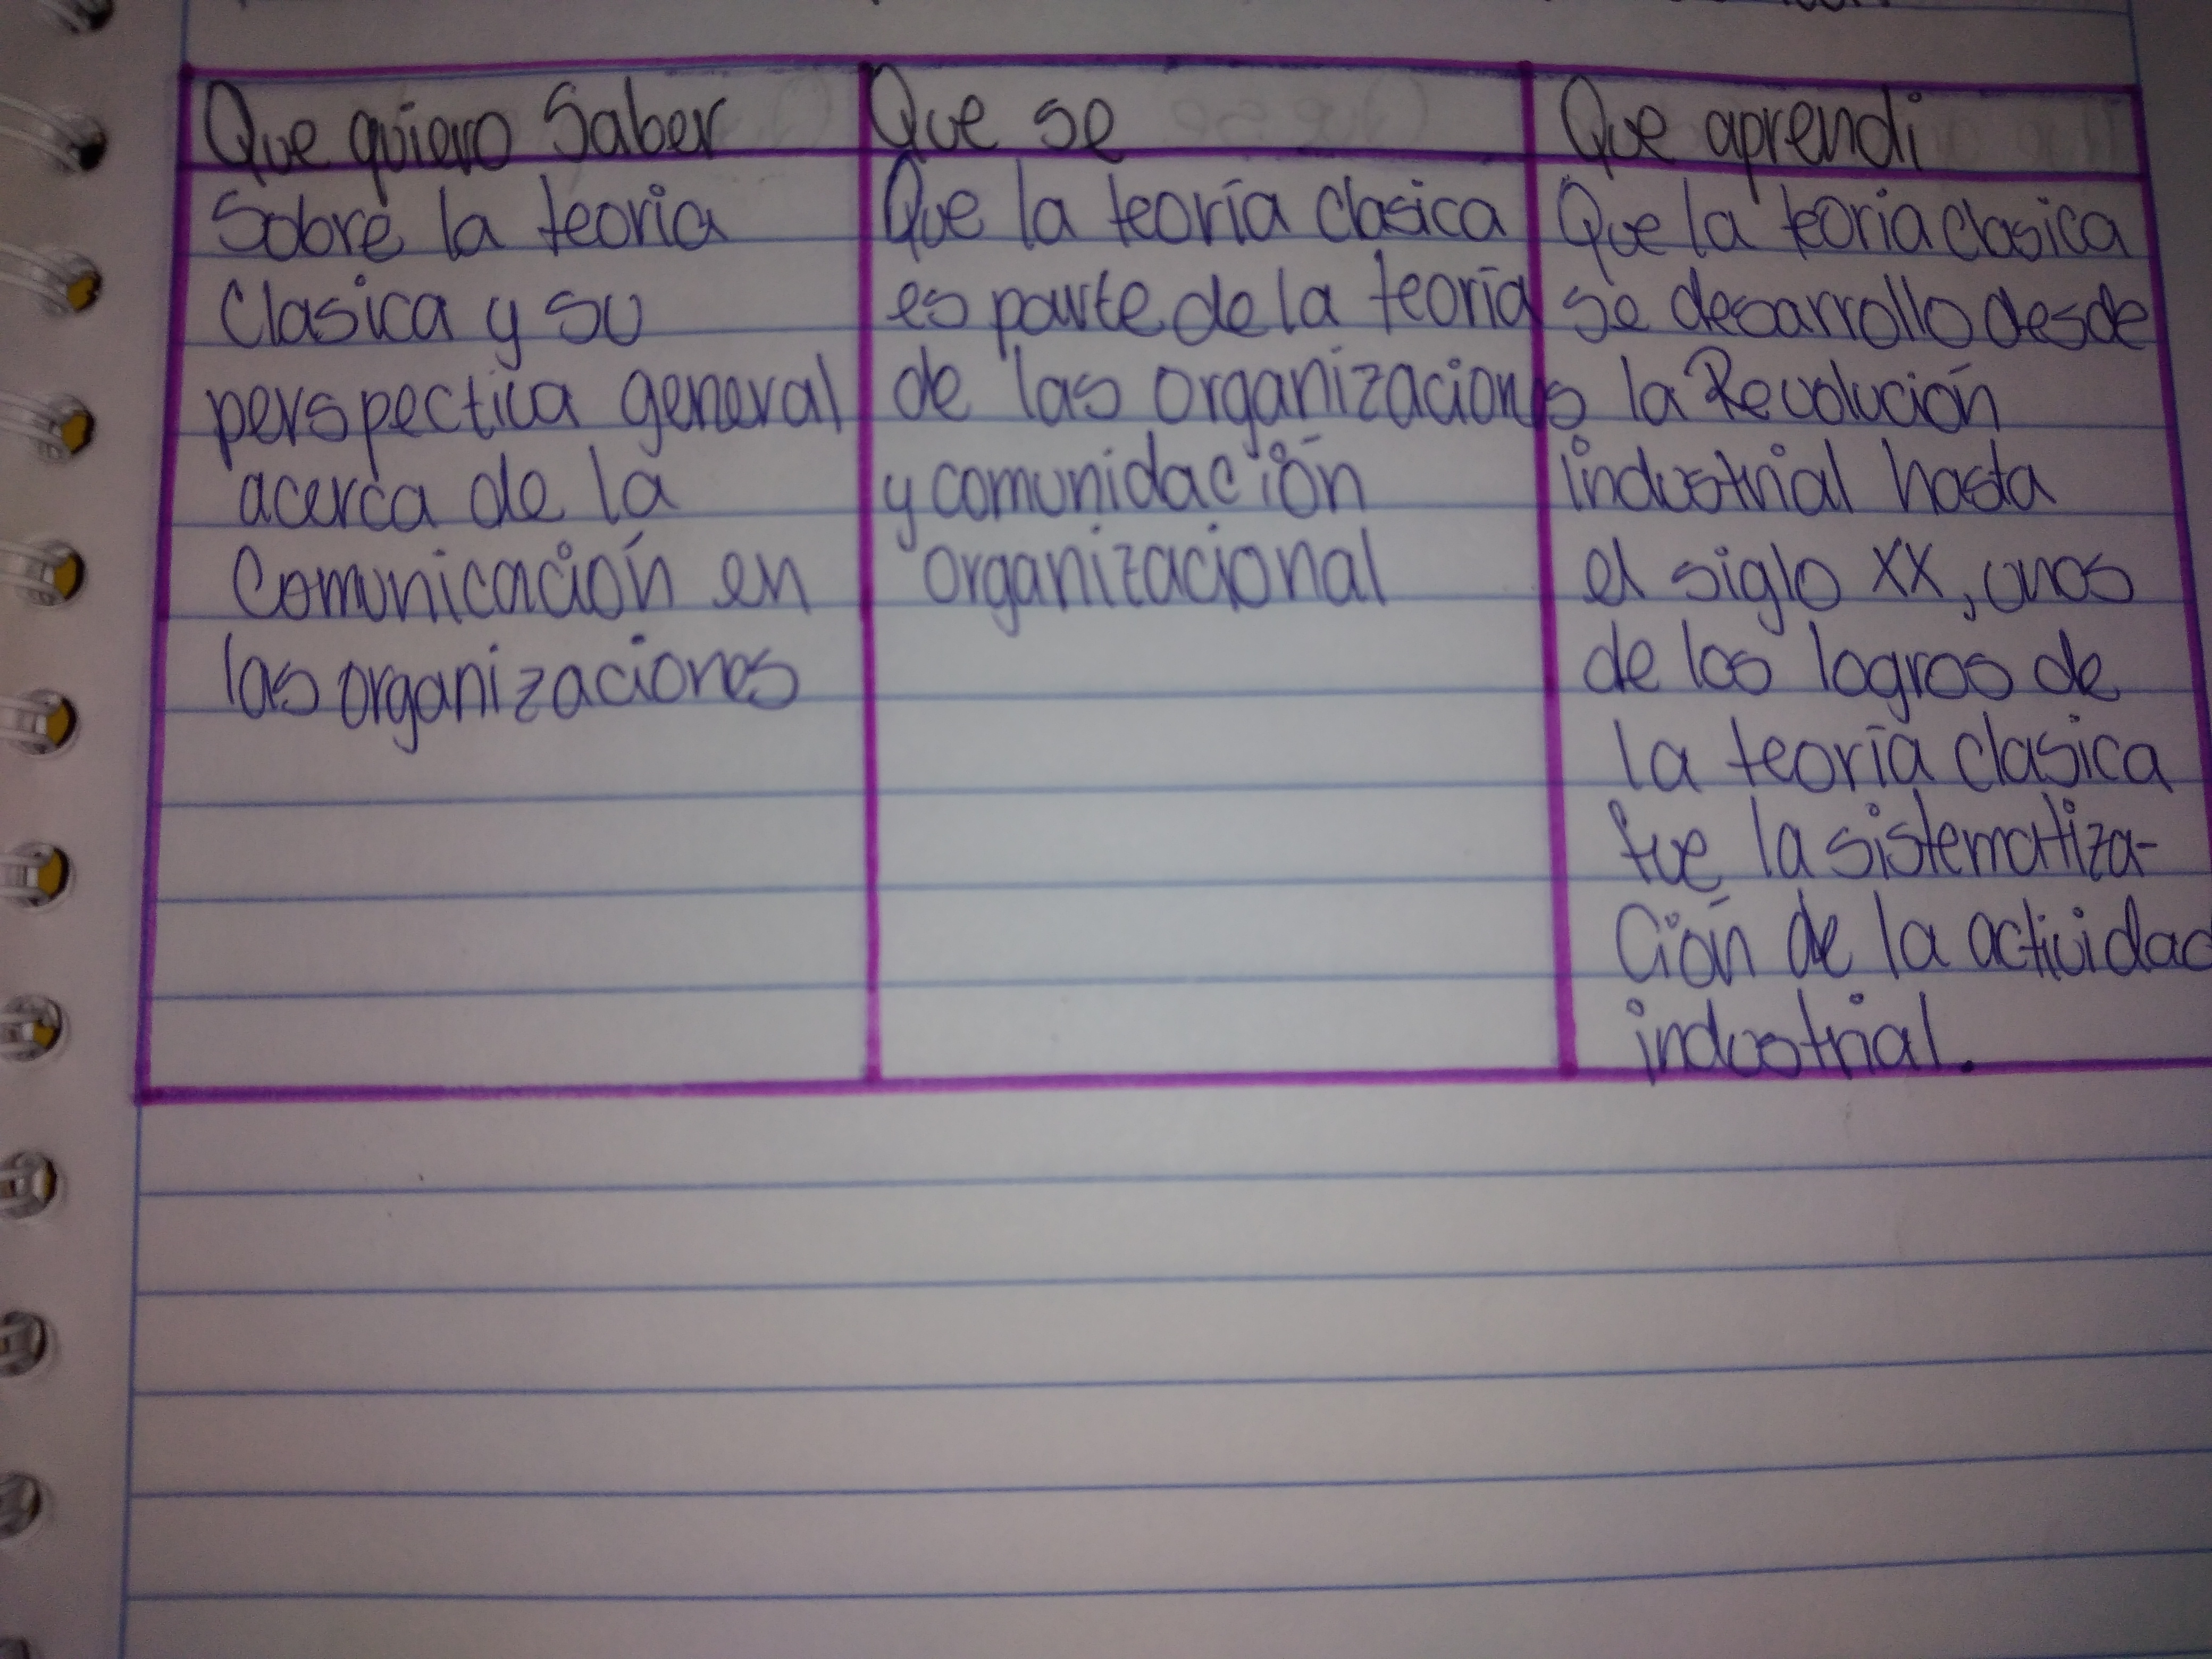 Que quiero Saber
Sobre la teoria
Clasica y su
perspectiva general
acerca de la
Comunicación en
las organizaciones
Que se
Que la teoría clasica
es parte de la teoría
de las organizaciones
y comunidación
organizacional
Que aprendi
Que la teoria clasica
se desarrollo desde
la Revolución
industrial hasta
el siglo XX, unos
de los logros de
la teoría clasica
fue la sistematiza-
ción de la actividad
industrial.